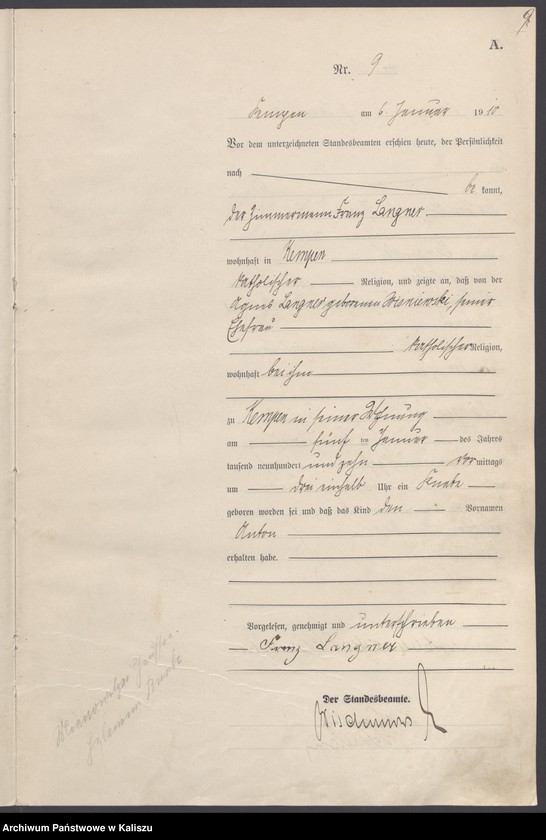 9
A.
Nr. 9
Kempen am 6. Januar 1910
Vor dem unterzeichneten Standesbeamten erschien heute, der Persönlichkeit
nach be kannt,
der Zimmermann Franz Langner
wohnhaft in Kempen
katholischer Religion, und zeigte an, daß von der
Agnes Langner geborenen Wisniewski, seiner
Ehefrau
katholischer Religion,
wohnhaft bei ihm
zu Kempen in seiner Wohnung
am fünf ten Januar des Jahres
tausend neunhundert und zehn vor mittags
um drei einhalb Uhr ein Knabe
geboren worden sei und daß das Kind den Vornamen
Anton
erhalten habe.
Vorgelesen, genehmigt und unterschrieben
Franz Langner
Der Standesbeamte.
Archiwum Państwowe w Kaliszu